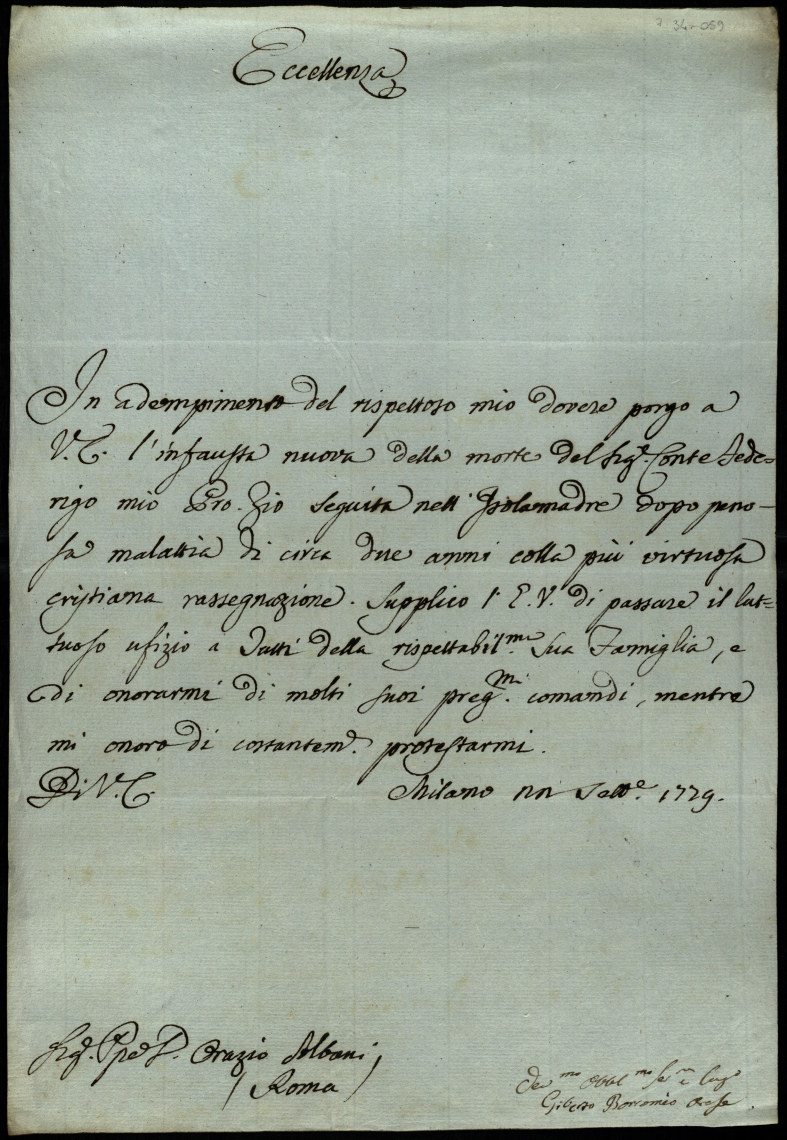 7 34-059
Eccellenza
In adempimento del rispettoso mio dovere porgo a
V.E. l'infausta nuova della morte del Sigr. Conte Fede-
rigo mio Pro-Zio seguita nell'Isolamadre dopo peno-
sa malattia di circa due anni colla più virtuosa
cristiana rassegnazione. Supplico l'E.V. di passare il lut-
tuoso ufizio a Tutti della rispettabilma. Sua Famiglia, e
di onorarmi di molti suoi pregmi. comandi, mentre
mi onoro di costantemte. protestarmi.
Di V.E. Milano Settre. 1779.
Sigr. Ppe D. Orazio Albani
(Roma)
Devmo Obblmo
Giberto Borromeo Arese